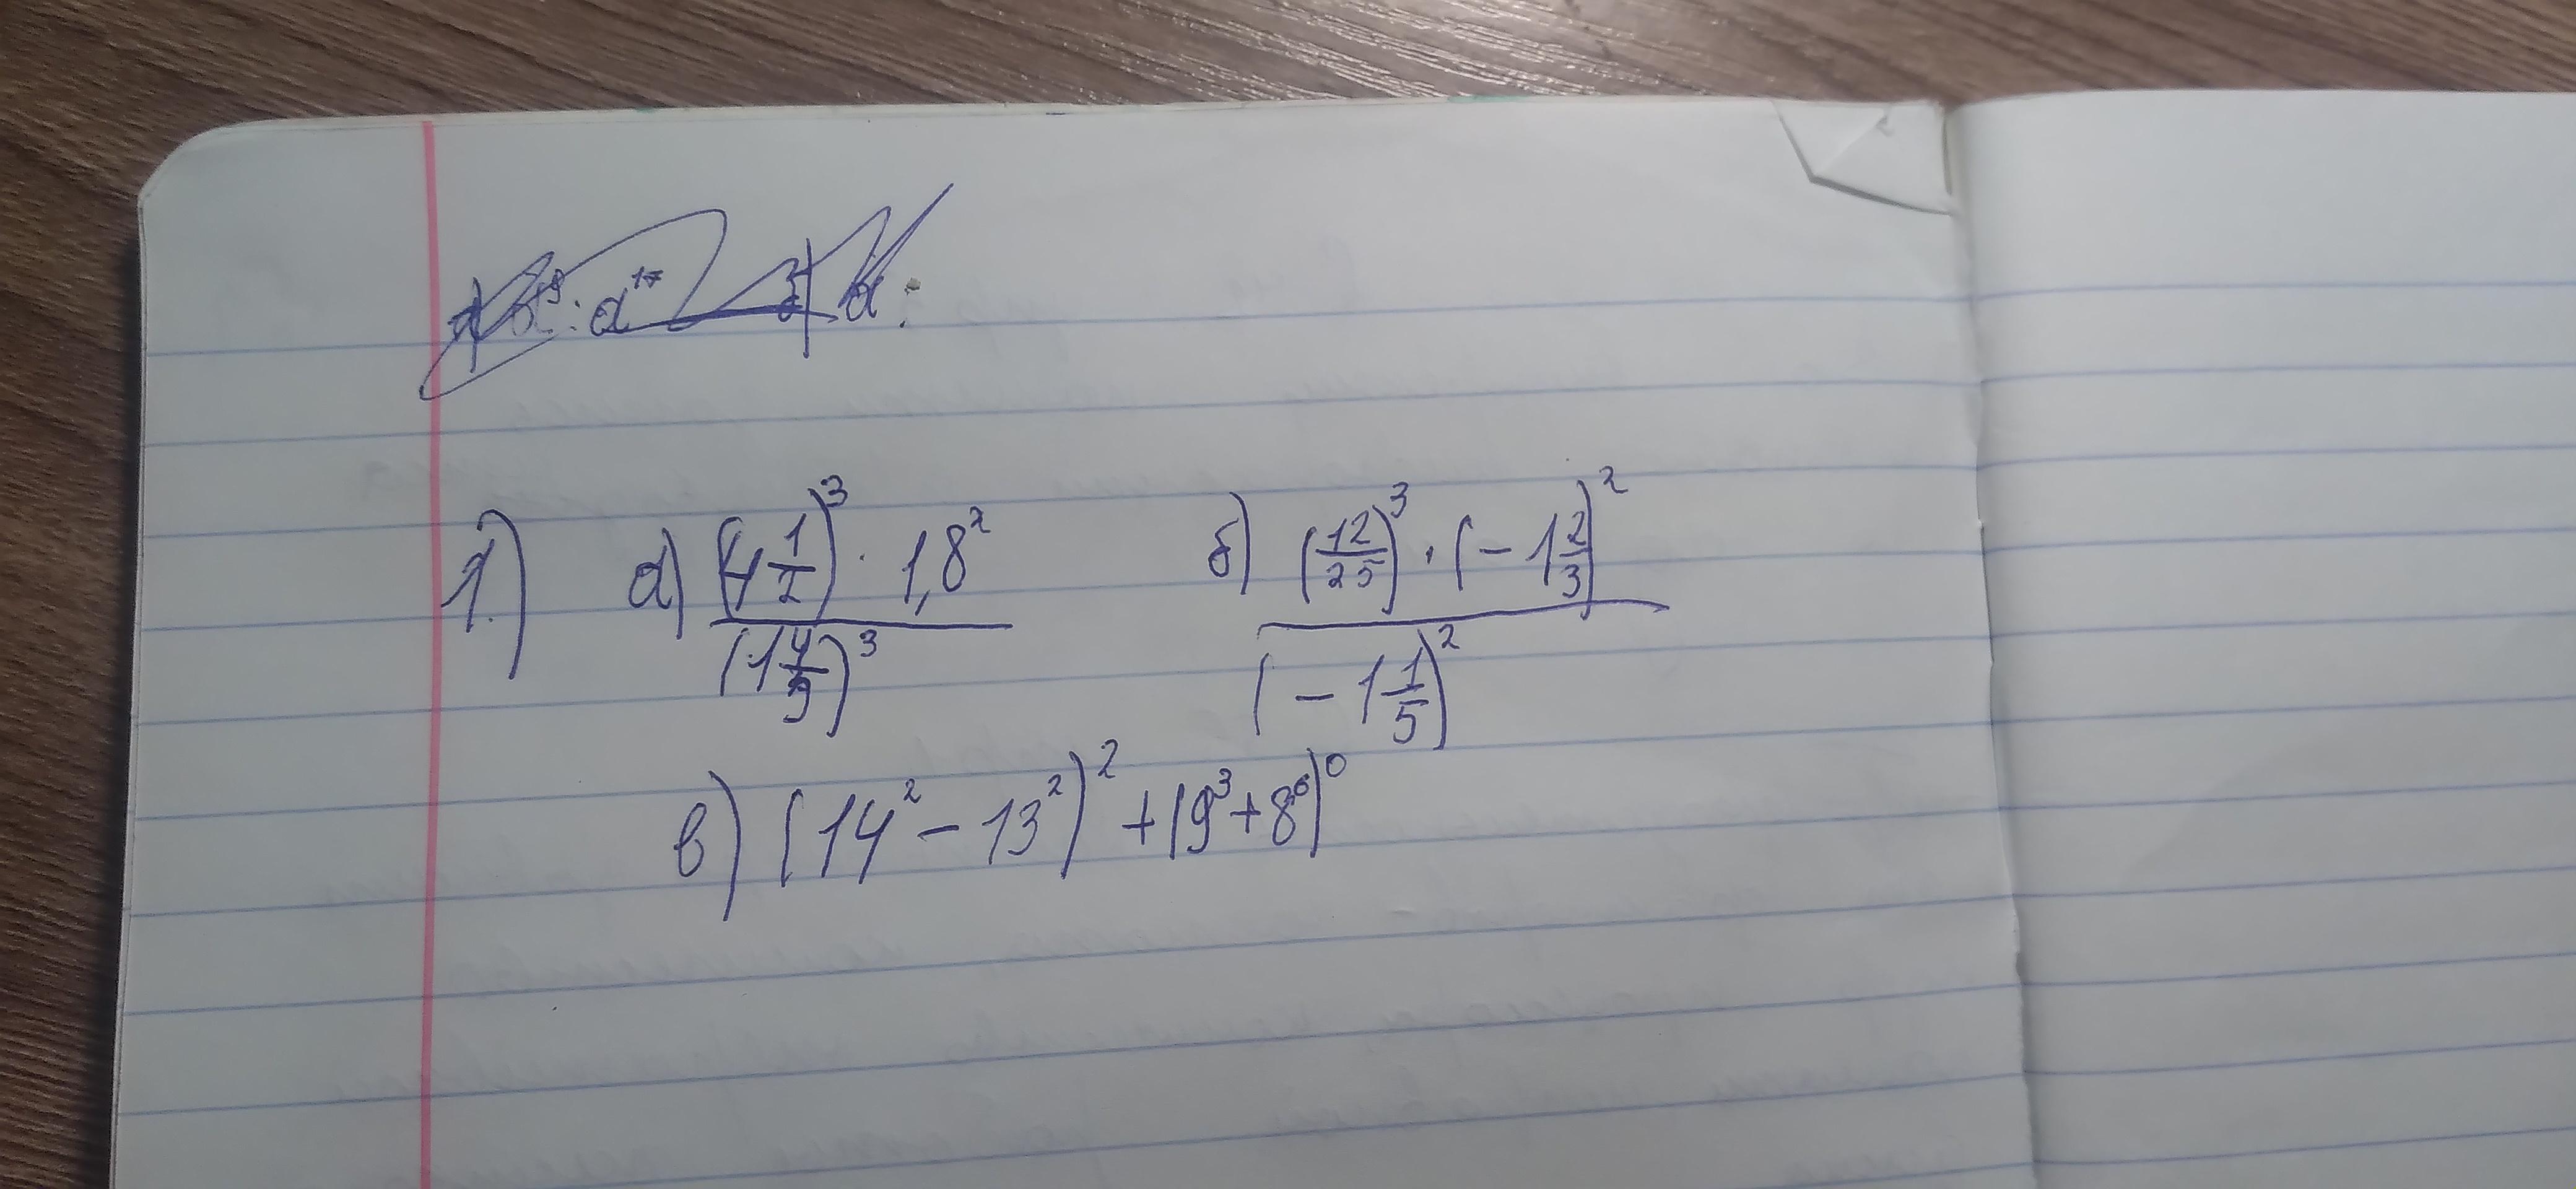 1.) а) (4 1/2)³ · 1,8² / (1 4/5)³ б) (12/25)³ · (-1 2/3)² / (-1 1/5)²
в) (14² - 13²)² + (9³ + 8⁶)⁰